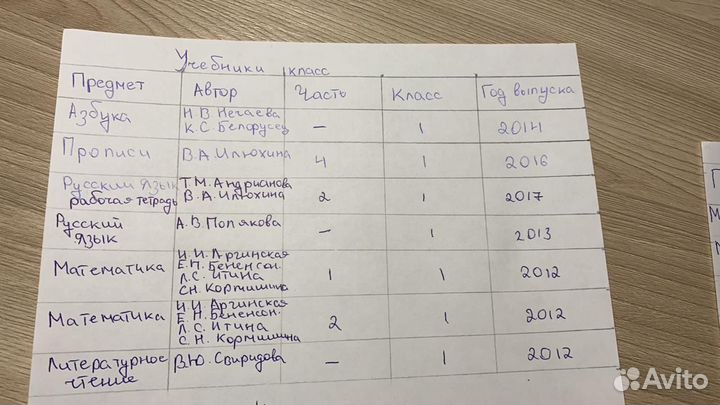 Учебники 1 класс
Предмет Автор Часть Класс Год выпуска
Азбука Н.В. Нечаева К.С. Белорусец — 1 2014
Прописи В.А. Илюхина 4 1 2016
Русский язык рабочая тетрадь Т.М. Андрианова В.А. Илюхина 2 1 2017
Русский язык А.В. Полякова — 1 2013
Математика И.И. Аргинская Е.П. Бененсон. Л.С. Итина С.Н. Кормишина 1 1 2012
Математика И.И. Аргинская Е.П. Бененсон. Л.С. Итина С.Н. Кормишина 2 1 2012
Литературное чтение В.Ю. Свиридова — 1 2012
Avito